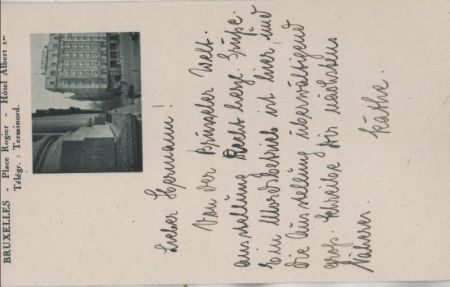 BRUXELLES - Place Rogier - Hôtel Albert 1er
Télégr. : Terminord.
Lieber Hermann!
Von der Brüsseler Welt-
ausstellung recht herzl. Grüße.
Ein Mordsbetrieb ist hier, und
die Ausstellung überwältigend
groß. Schreibe Dir nächstens
Näheres.
Käthe.